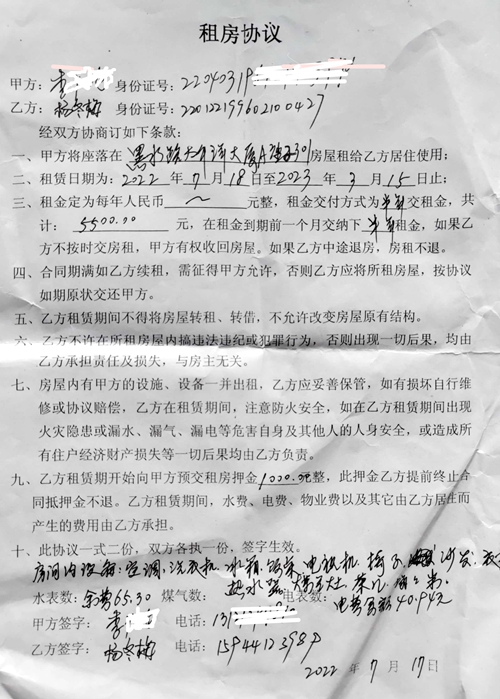 租房协议
甲方：李 身份证号：22040319
乙方：杨冬梅 身份证号：220122199602100427
经双方协商订如下条款：
一、甲方将座落在 黑水路太平洋大厦A 301房屋租给乙方居住使用；
二、租赁日期为：2022 年 7 月 18 日至2023 年 3 月 15 日止；
三、租金定为每年人民币 ～ 元整，租金交付方式为半年交租金，共
计： 5500.00 元，在租金到期前一个月交纳下 半年租金，如果乙
方不按时交房租，甲方有权收回房屋。如果乙方中途退房，房租不退。
四、合同期满如乙方续租，需征得甲方允许，否则乙方应将所租房屋，按协议
如期原状交还甲方。
五、乙方租赁期间不得将房屋转租、转借，不允许改变房屋原有结构。
六、乙方不许在所租房屋内搞违法违纪或犯罪行为，否则出现一切后果，均由
乙方承担责任及损失，与房主无关。
七、房屋内有甲方的设施、设备一并出租，乙方应妥善保管，如有损坏自行维
修或协议赔偿，乙方在租赁期间，注意防火安全，如在乙方租赁期间出现
火灾隐患或漏水、漏气、漏电等危害自身及其他人的人身安全，或造成所
有住户经济财产损失等一切后果均由乙方负责。
九、乙方租赁期开始向甲方预交租房押金 1000.元整，此押金乙方提前终止合
同抵押金不退。乙方租赁期间，水费、电费、物业费以及其它由乙方居住而
产生的费用由乙方承担。
十、此协议一式二份，双方各执一份，签字生效。
房间内设备：空调、洗衣机、冰箱、饭桌、电视机、椅子、沙发、衣
热水器、茶几
水表数：余费65.30 煤气数： 电表数：电费余额40.94元
甲方签字：李 电话：13
乙方签字：杨冬梅 电话：15944123989
2022 年 7 月 17日